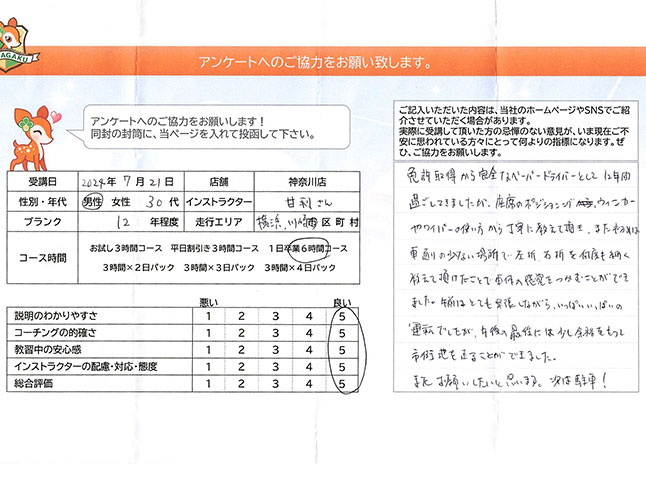 AGAKU
アンケートへのご協力をお願い致します。
アンケートへのご協力をお願いします！
同封の封筒に、当ページを入れて投函して下さい。
受講日 2024年 7月 21日 店舗 神奈川店
性別・年代 男性 女性 30代 インストラクター 甘利さん
ブランク 12 年程度 走行エリア 横浜、川崎市区町村
コース時間
お試し3時間コース 平日割引き3時間コース 1日卒業6時間コース
3時間×2日パック 3時間×3日パック 3時間×4日パック
悪い 良い
説明のわかりやすさ 1 2 3 4 5
コーチングの的確さ 1 2 3 4 5
教習中の安心感 1 2 3 4 5
インストラクターの配慮・対応・態度 1 2 3 4 5
総合評価 1 2 3 4 5
ご記入いただいた内容は、当社のホームページやSNSでご紹
介させていただく場合があります。
実際に受講して頂いた方の忌憚のない意見が、いま現在ご不
安に思われている方々にとって何よりの指標になります。ぜ
ひ、ご協力をお願いします。
免許取得から完全なペーパードライバーとして12年間
過ごしてきましたが、座席のポジショニング、ウィンカー
やワイパーの使い方から丁寧に教えて頂き、また
車通りの少ない場所で左折、右折を何度も
教えて頂けたことで車体の感覚をつかむことができ
ました。午前はとても緊張しながら、いっぱいいっぱいの
運転でしたが、午後の最後には少し余裕をもって
市街地を走ることができました。
またお願いしたいと思います。次は駐車！